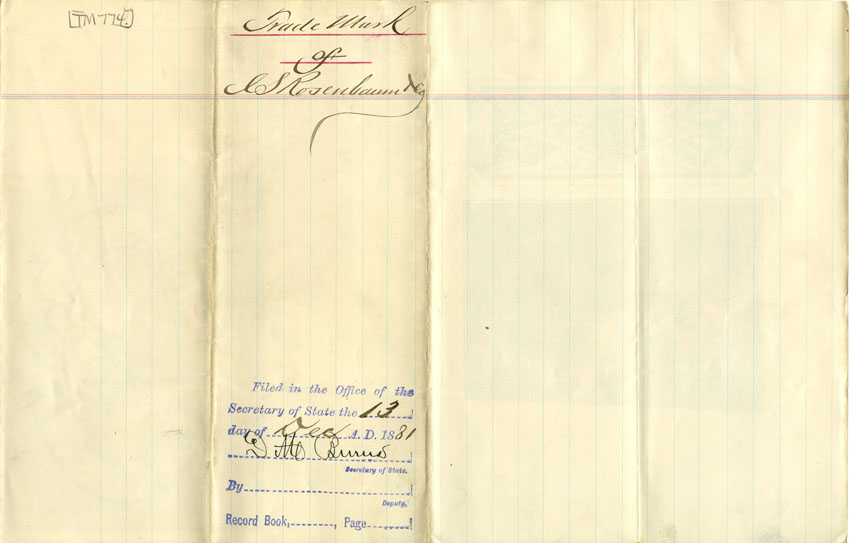 [TM 774.]
Trade Mark
of
C S Rosenbaum & Co
Filed in the Office of the
Secretary of State the 13
day of Dec A. D. 1881
D M Burns
Secretary of State.
By
Deputy.
Record Book, Page